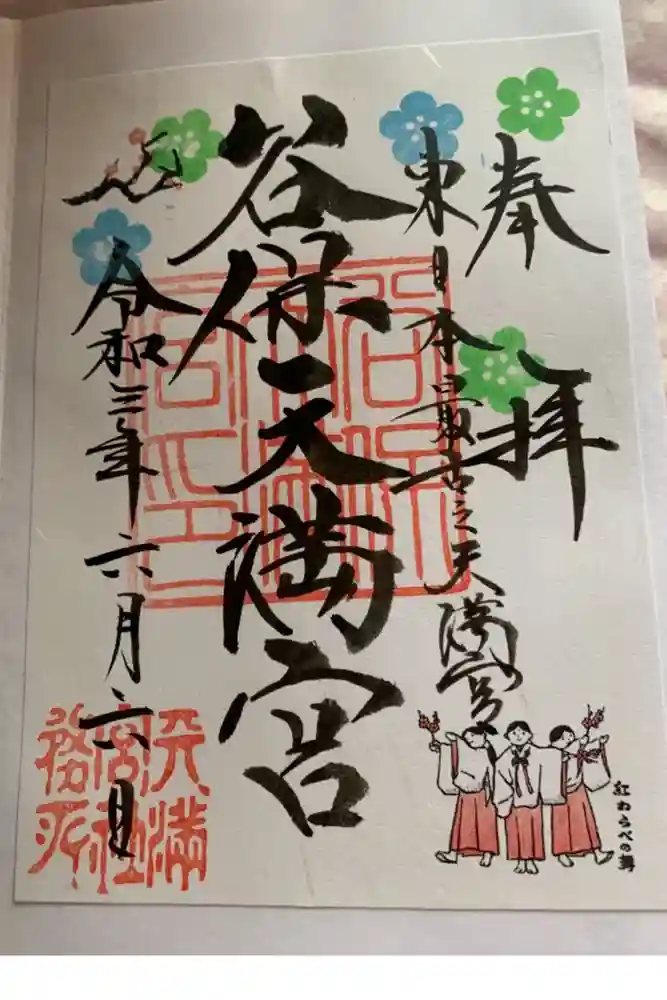 奉拝
東日本最古之天満宮
谷保天満宮
令和三年六月六日
紅わらべの舞
天満宮社務所